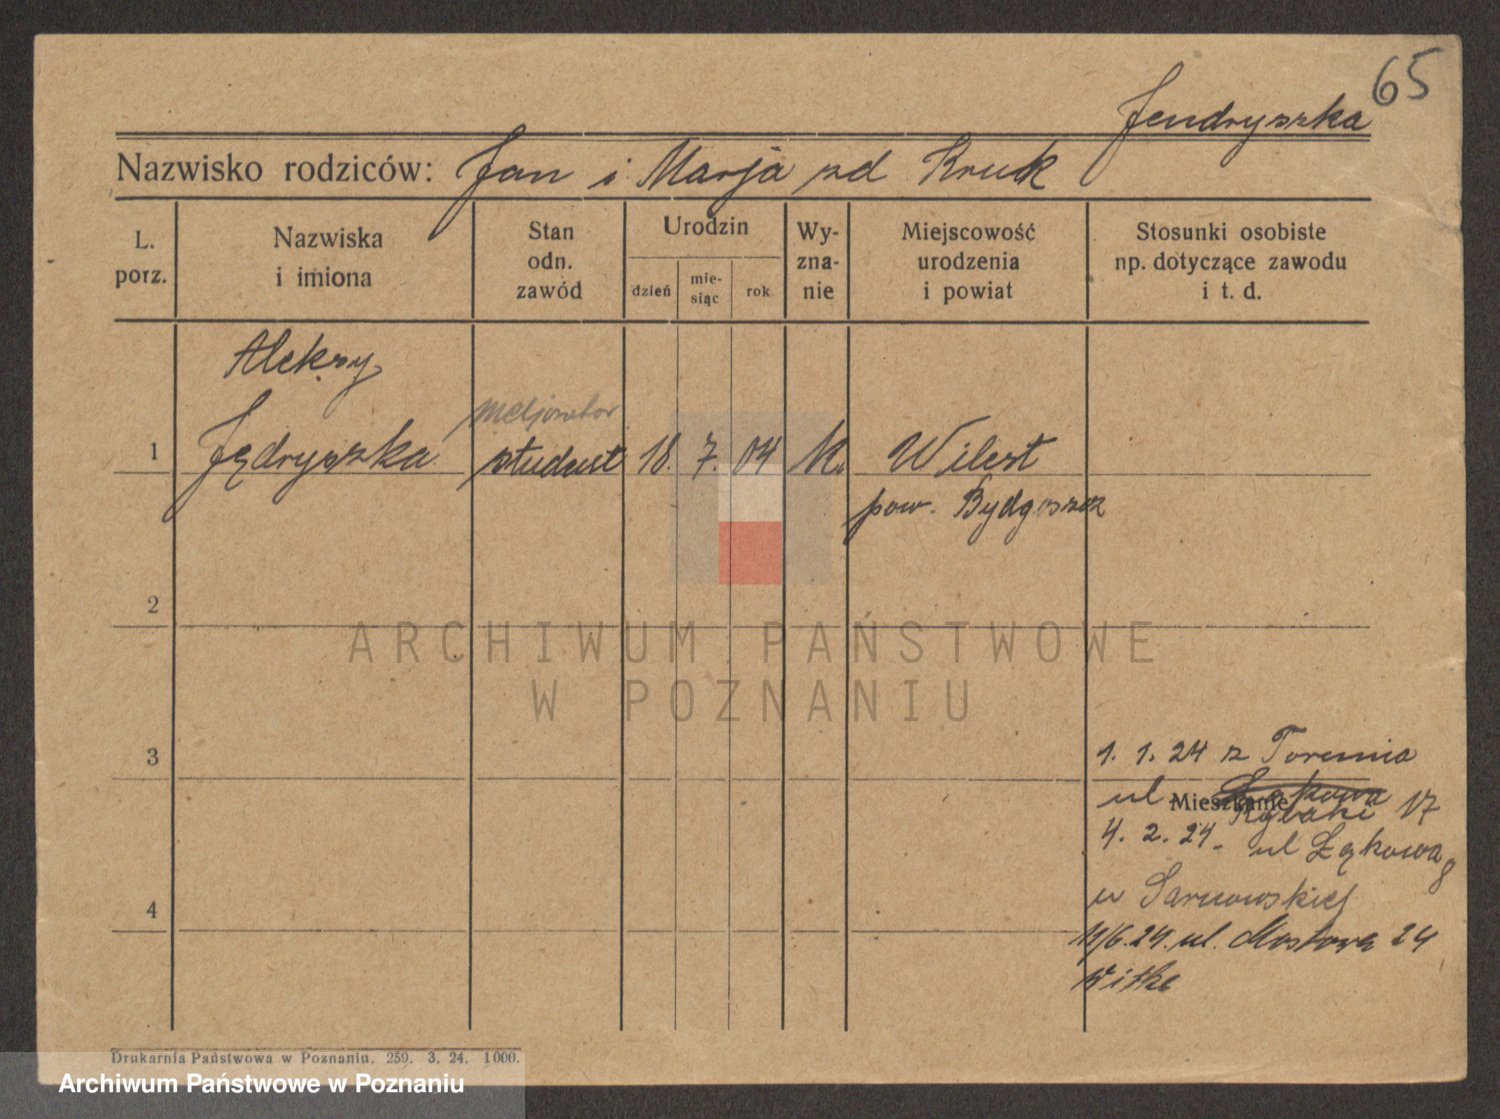 65
Jendryszka
Nazwisko rodziców: Jan i Marja zd Kruk
L. porz.
Nazwiska i imiona
Stan odn. zawód
Urodzin
dzień
mie-siąc
rok
Wy-zna-nie
Miejscowość urodzenia i powiat
Stosunki osobiste np. dotyczące zawodu i t. d.
Aleksy
meljorator
1 Jędryszka student 18. 7. 04 k. Wilcst
pow. Bydgoszcz
2
ARCHIWUM PAŃSTWOWE
W POZNANIU
3
1. 1. 24 z Torunia
ul Łąkowa
Mieszkanie
Rybaki 17
4. 2. 24. ul Łąkowa 8
u Sarnowskiej
4
11/6.24. ul. Mostowa 24
Witke
Drukarnia Państwowa w Poznaniu. 259. 3. 24. 1000.
Archiwum Państwowe w Poznaniu